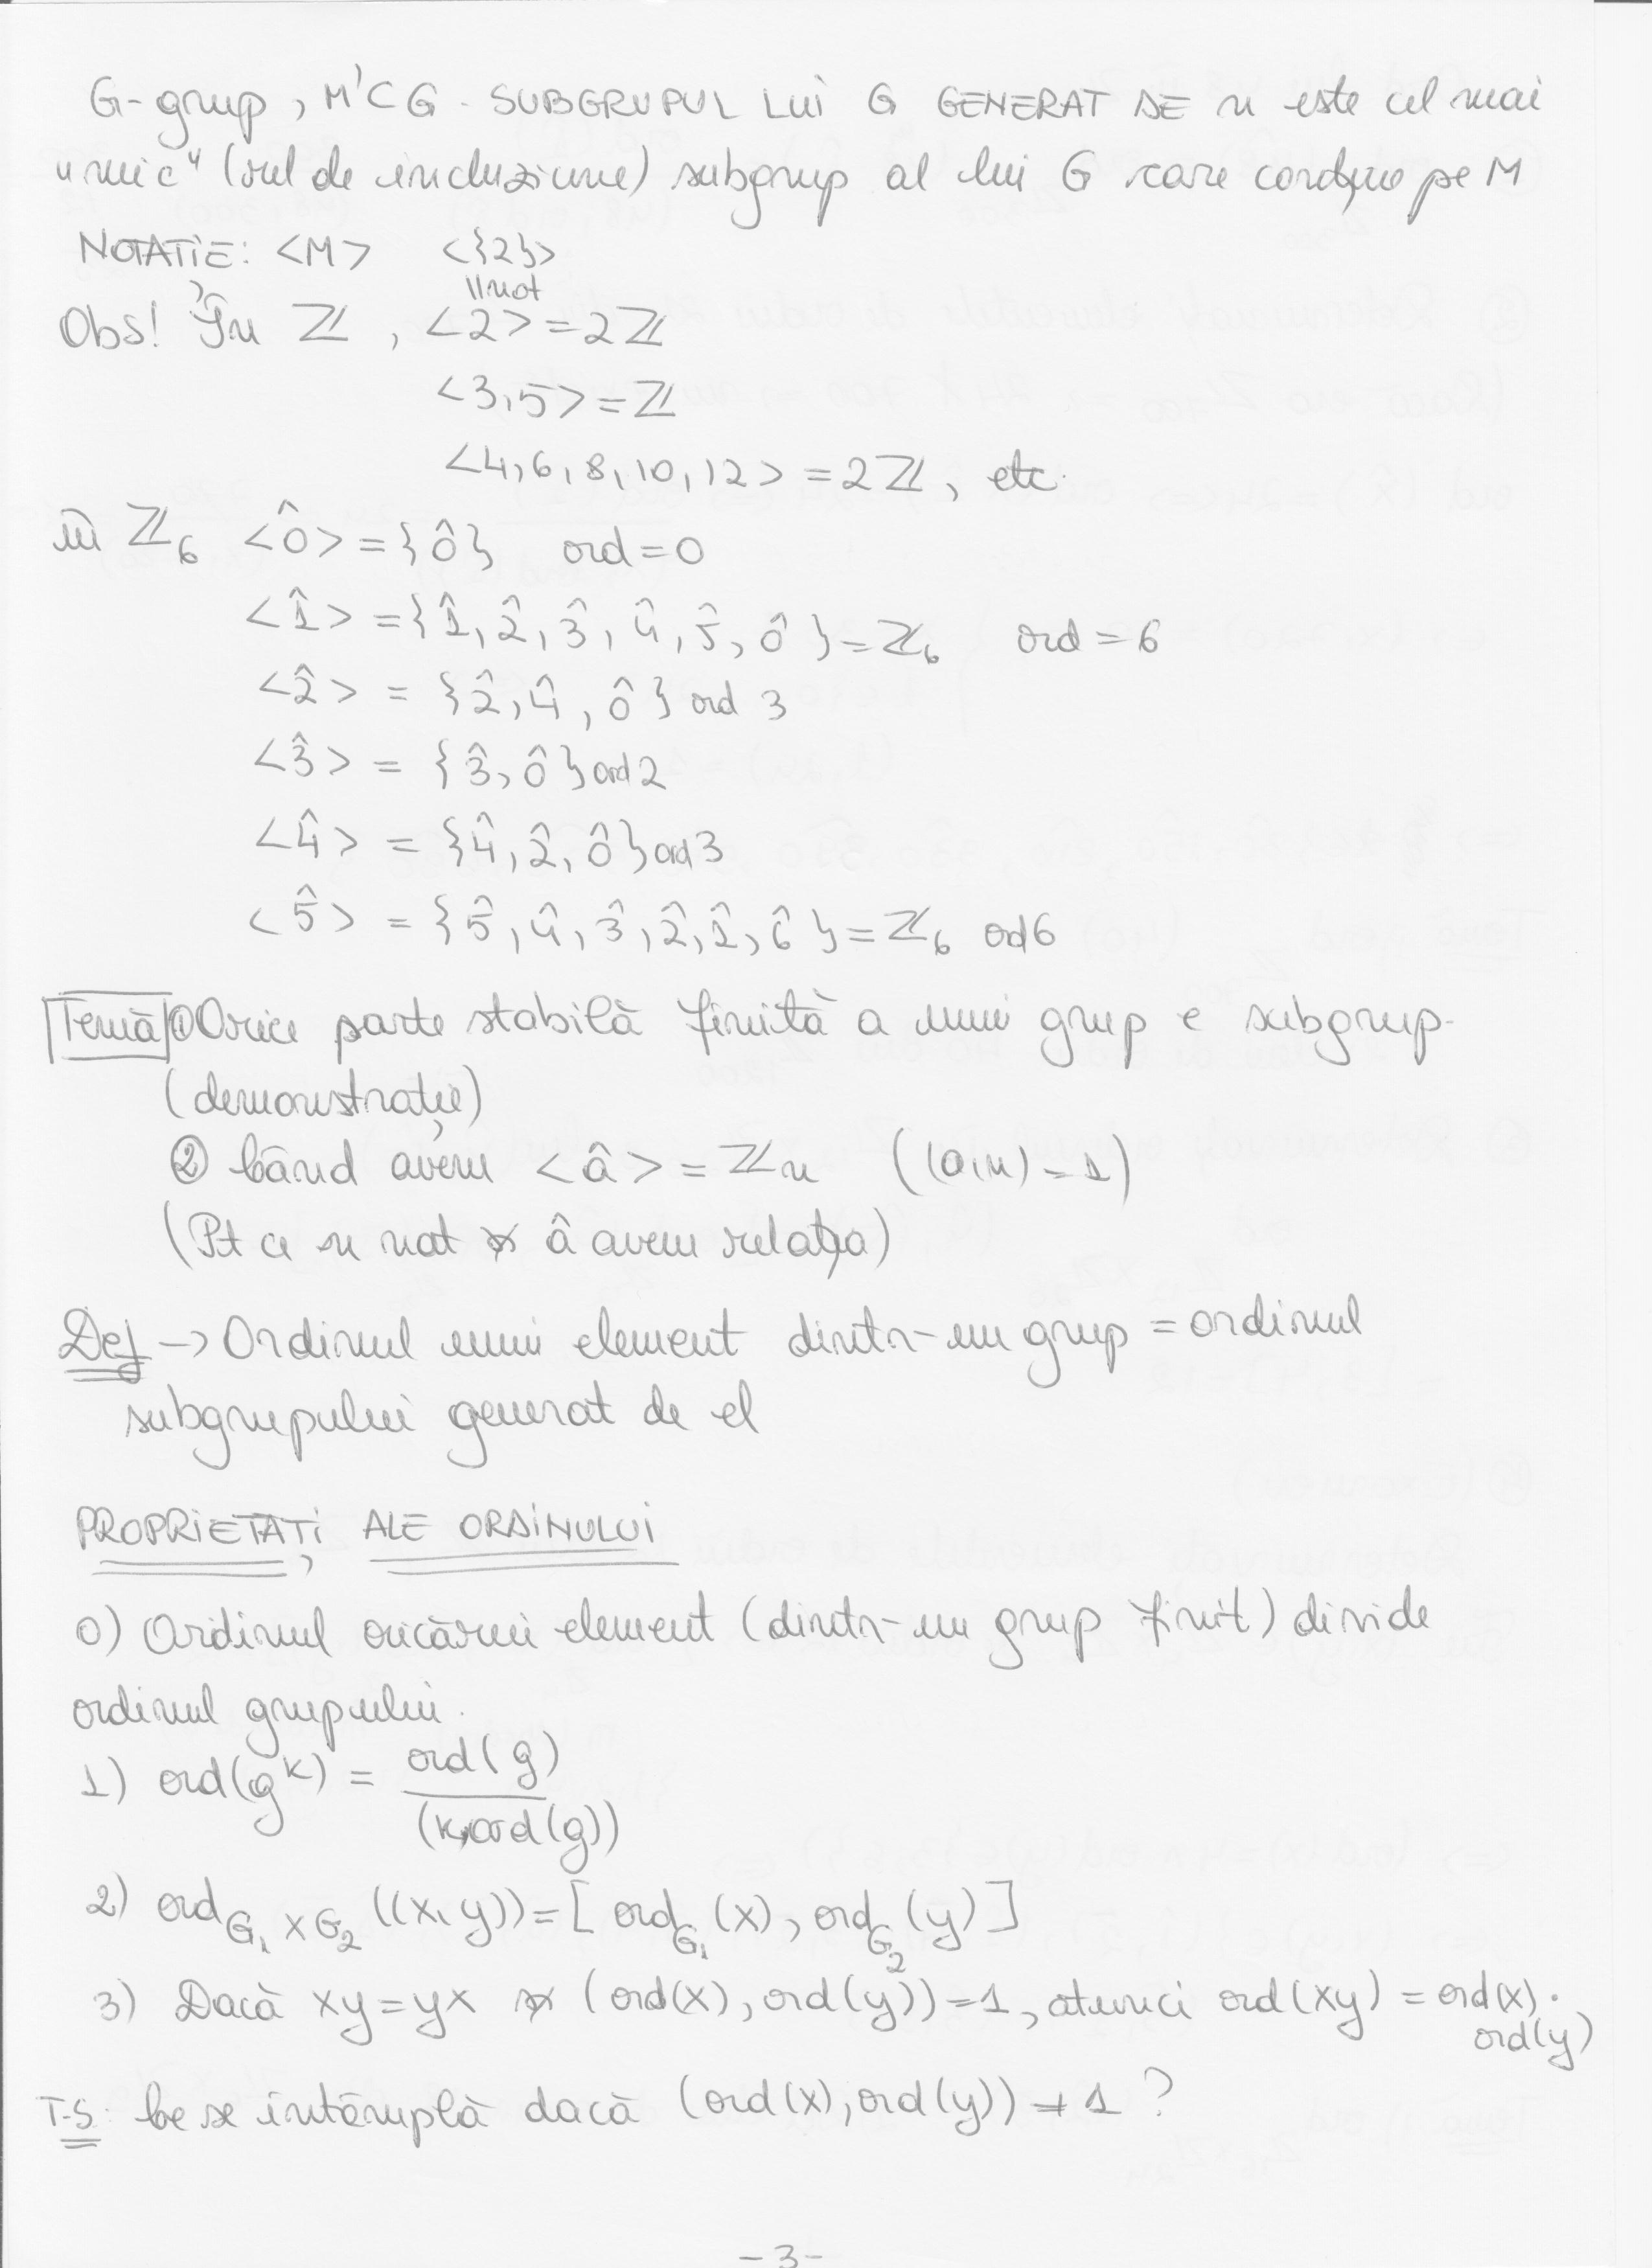 G-grup, M'⊂G. SUBGRUPUL LUI G GENERAT DE M este cel mai
"mic" (rel de incluziune) subgrup al lui G care conține pe M
NOTAȚIE: <M> <{2}>
||not
Obs! În ℤ, <2> = 2ℤ
<3,5> = ℤ
<4,6,8,10,12> = 2ℤ, etc.
în ℤ₆ <0̂> = {0̂} ord = 0
<1̂> = {1̂, 2̂, 3̂, 4̂, 5̂, 0̂} = ℤ₆ ord = 6
<2̂> = {2̂, 4̂, 0̂} ord 3
<3̂> = {3̂, 0̂} ord 2
<4̂> = {4̂, 2̂, 0̂} ord 3
<5̂> = {5̂, 4̂, 3̂, 2̂, 1̂, 6̂} = ℤ₆ ord 6
Temă ① Orice parte stabilă finită a unui grup e subgrup.
(demonstrație)
② Când avem <â> = ℤn ((a,n) = 1)
(Pt ce n nat și â avem relația)
Def → Ordinul unui element dintr-un grup = ordinul
subgrupului generat de el
PROPRIETĂȚI ALE ORDINULUI
0) Ordinul oricărui element (dintr-un grup finit) divide
ordinul grupului.
1) ord(g^k) = ord(g) / (k, ord(g))
2) ord_{G₁×G₂}((x,y)) = [ord_{G₁}(x), ord_{G₂}(y)]
3) Dacă xy = yx și (ord(x), ord(y)) = 1, atunci ord(xy) = ord(x) ·
ord(y)
T-S: Ce se întâmplă dacă (ord(x), ord(y)) ≠ 1 ?
-3-